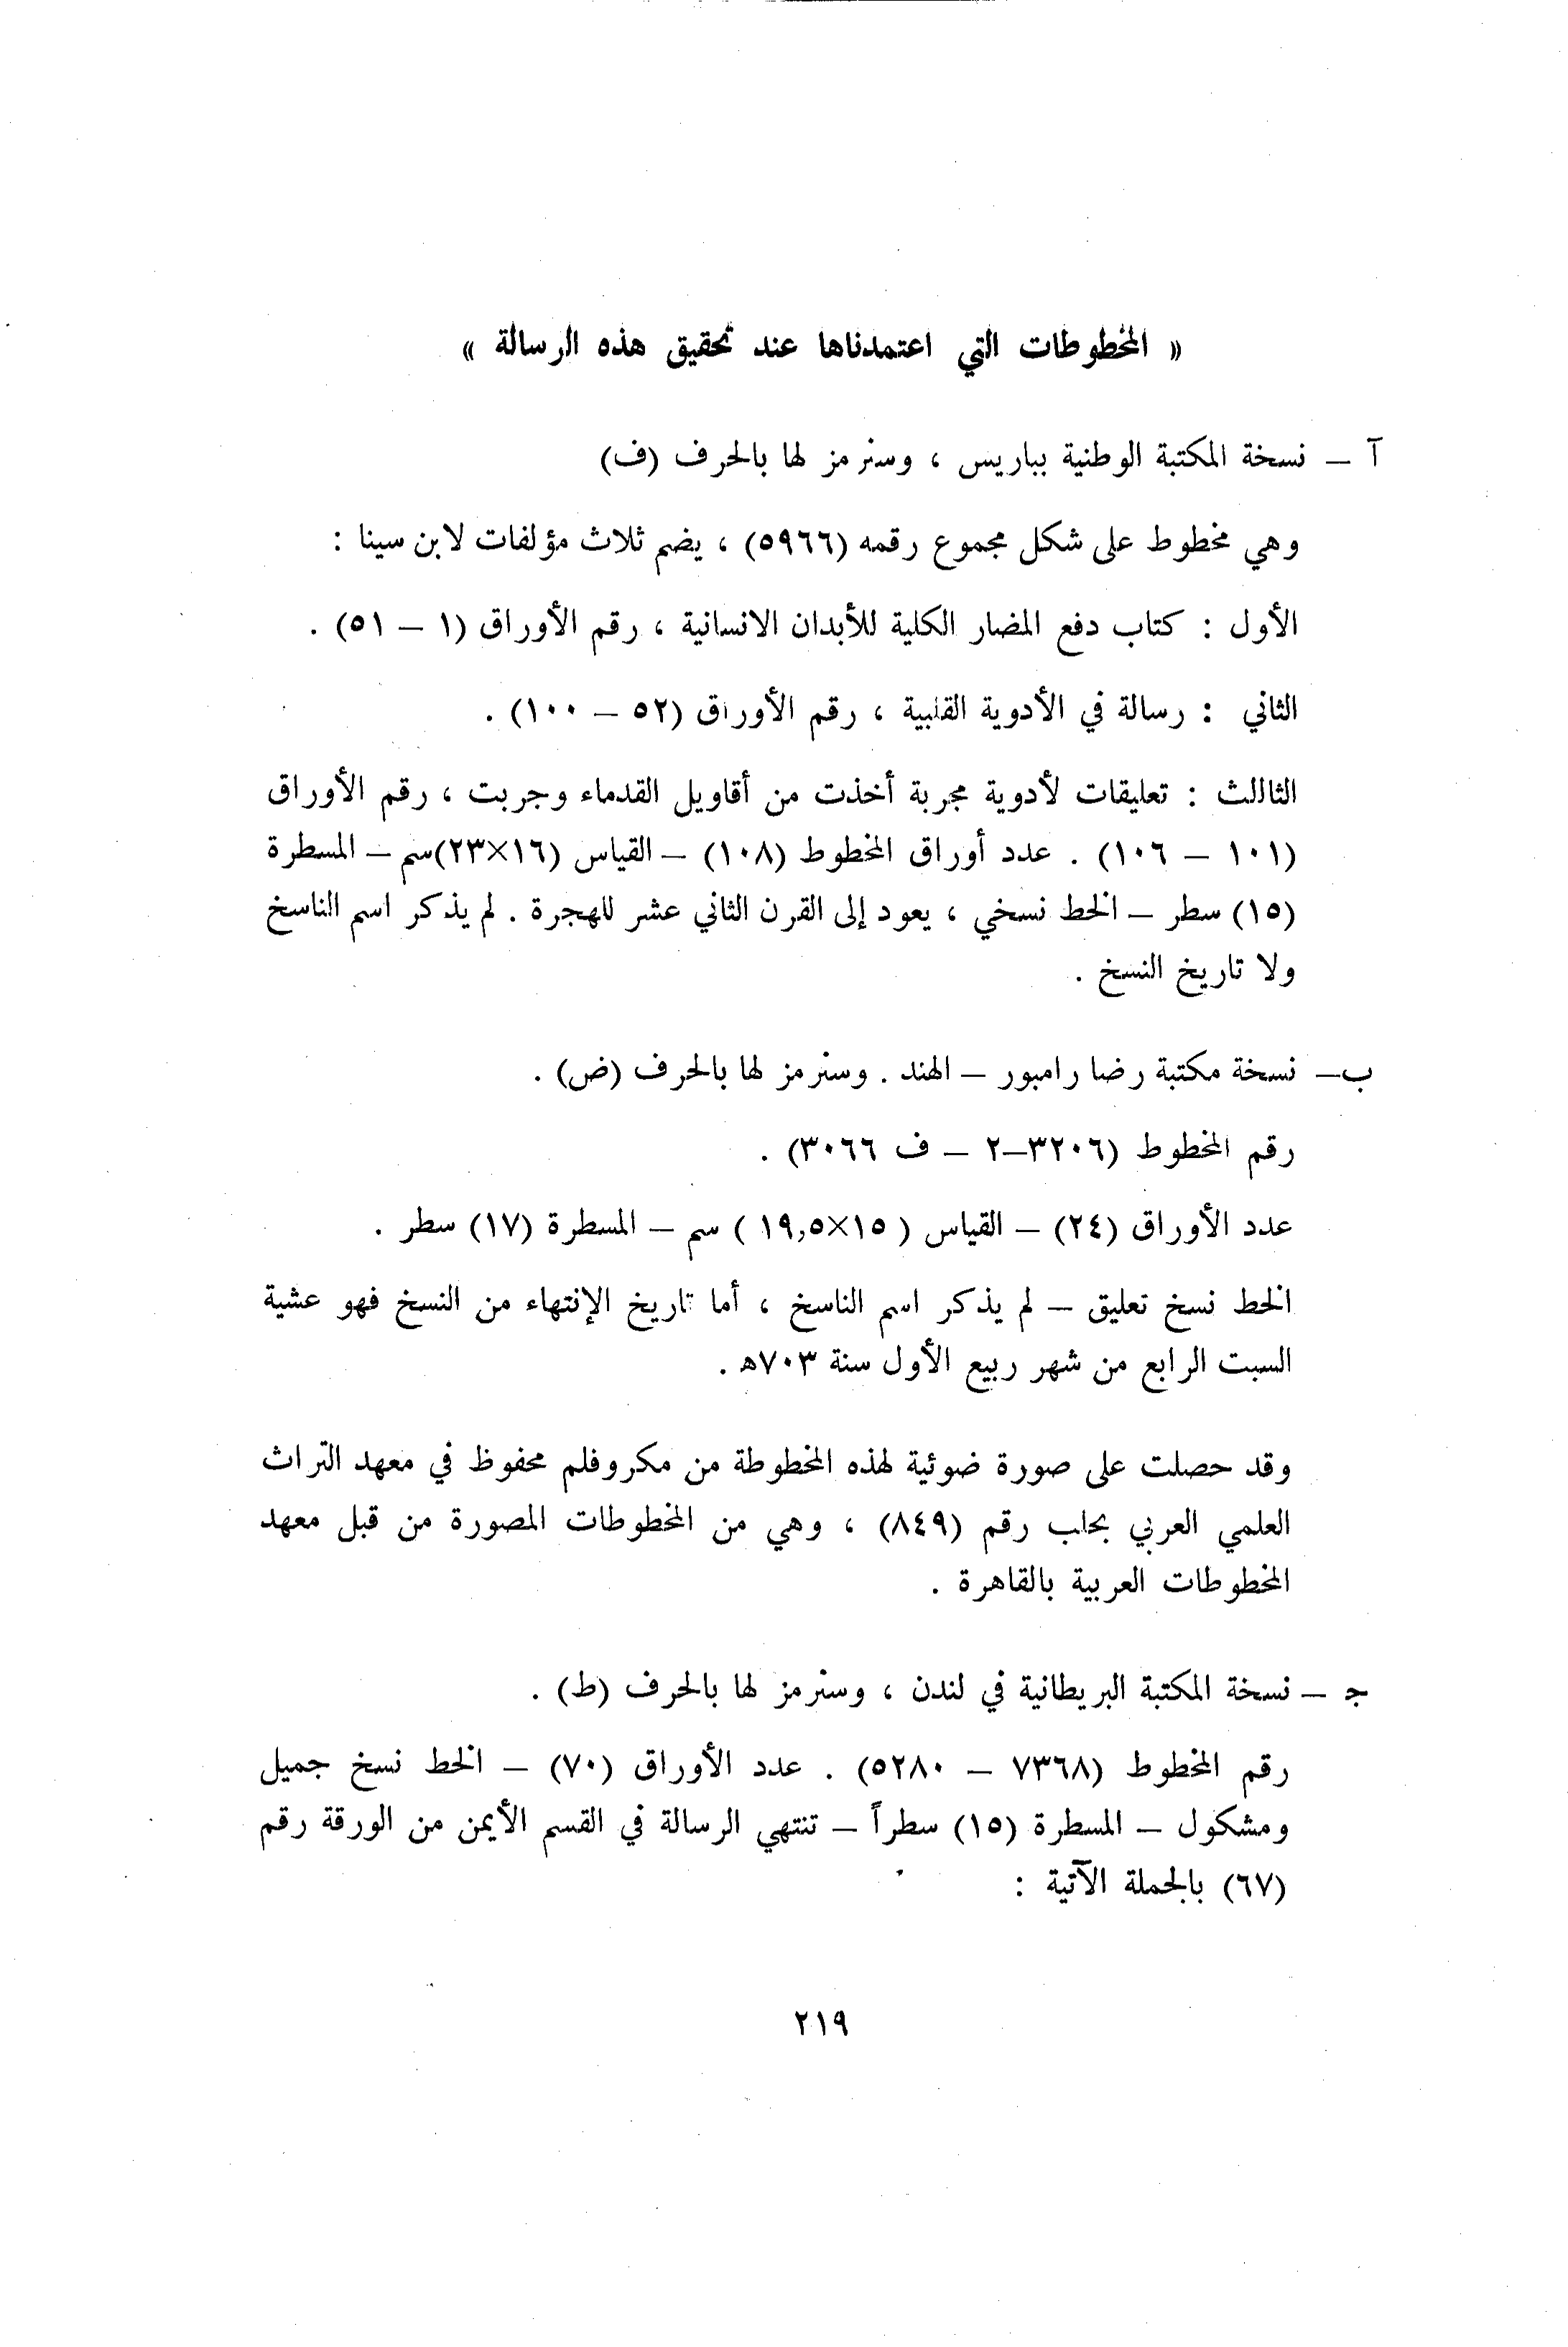 « المخطوطات التي اعتمدناها عند تحقيق هذه الرسالة »
آ – نسخة المكتبة الوطنية بباريس ، وسنرمز لها بالحرف (ف)
وهي مخطوط على شكل مجموع رقمه (٥٩٦٦) ، يضم ثلاث مؤلفات لابن سينا :
الأول : كتاب دفع المضار الكلية للأبدان الانسانية ، رقم الأوراق (١ – ٥١) .
الثاني : رسالة في الأدوية القلبية ، رقم الأوراق (٥٢ – ١٠٠) .
الثالث : تعليقات لأدوية مجربة أخذت من أقاويل القدماء وجربت ، رقم الأوراق
(١٠١ – ١٠٦) . عدد أوراق المخطوط (١٠٨) – القياس (١٦×٢٣)سم – المسطرة
(١٥) سطر – الخط نسخي ، يعود إلى القرن الثاني عشر للهجرة . لم يذكر اسم الناسخ
ولا تاريخ النسخ .
ب– نسخة مكتبة رضا رامبور – الهند . وسنرمز لها بالحرف (ض) .
رقم المخطوط (٣٢٠٦–٢ – ف ٣٠٦٦) .
عدد الأوراق (٢٤) – القياس ( ١٥×١٩,٥ ) سم – المسطرة (١٧) سطر .
الخط نسخ تعليق – لم يذكر اسم الناسخ ، أما تاريخ الإنتهاء من النسخ فهو عشية
السبت الرابع من شهر ربيع الأول سنة ٧٠٣ه .
وقد حصلت على صورة ضوئية لهذه المخطوطة من مكروفلم محفوظ في معهد التراث
العلمي العربي بحلب رقم (٨٤٩) ، وهي من المخطوطات المصورة من قبل معهد
المخطوطات العربية بالقاهرة .
ج – نسخة المكتبة البريطانية في لندن ، وسنرمز لها بالحرف (ط) .
رقم المخطوط (٧٣٦٨ – ٥٢٨٠) . عدد الأوراق (٧٠) – الخط نسخ جميل
ومشكول – المسطرة (١٥) سطراً – تنتهي الرسالة في القسم الأيمن من الورقة رقم
(٦٧) بالجملة الآتية :
٢١٩